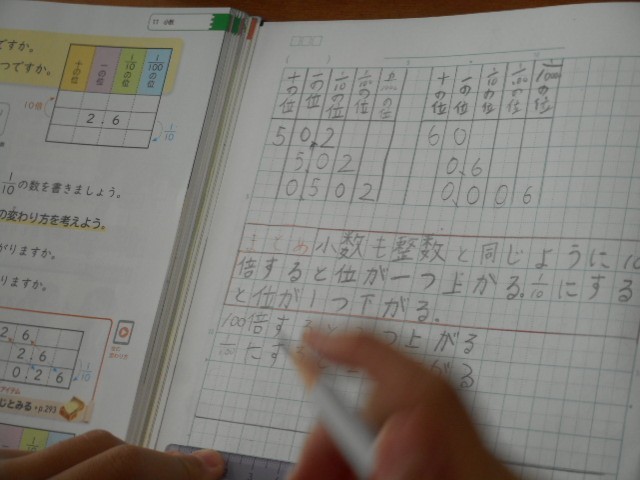 11 小数
ですか。
つですか。
十の位 一の位 1/10の位 1/100の位
10倍
2.6
1/10
1/10の数を書きましょう。
の変わり方を考えよう。
がりますか。
りますか。
2 6
2.6
0.2 6
1/10
じとみる p.293
十の位 一の位 1/10の位 1/100の位
十の位 一の位 1/10の位 1/100の位 1/1000の位
5 0.2
5 0 2
0 5 0 2
6 0
0.6
0.0 0 6
まとめ 小数も整数と同じように10
倍すると位が一つ上がる。1/10にする
と位が1つ下がる。
100倍す つ上がる
1/100にす がる